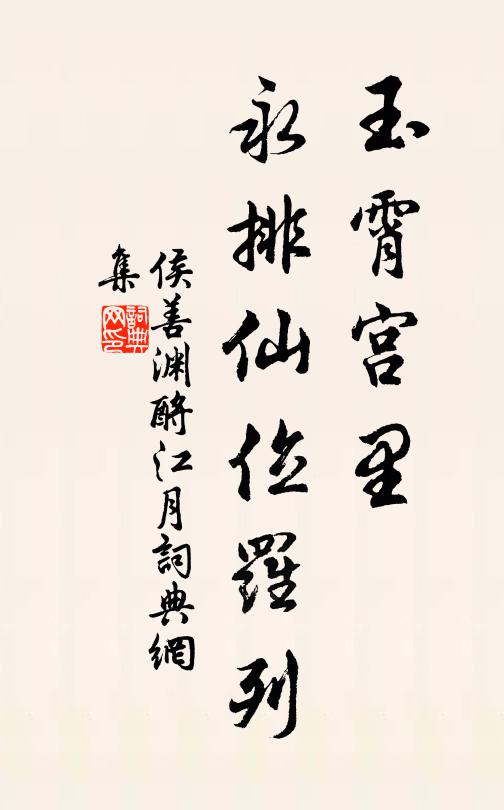 玉霄宫里
永排仙位羅列
侯善渊酹江月詞典網
集
詞典
网印